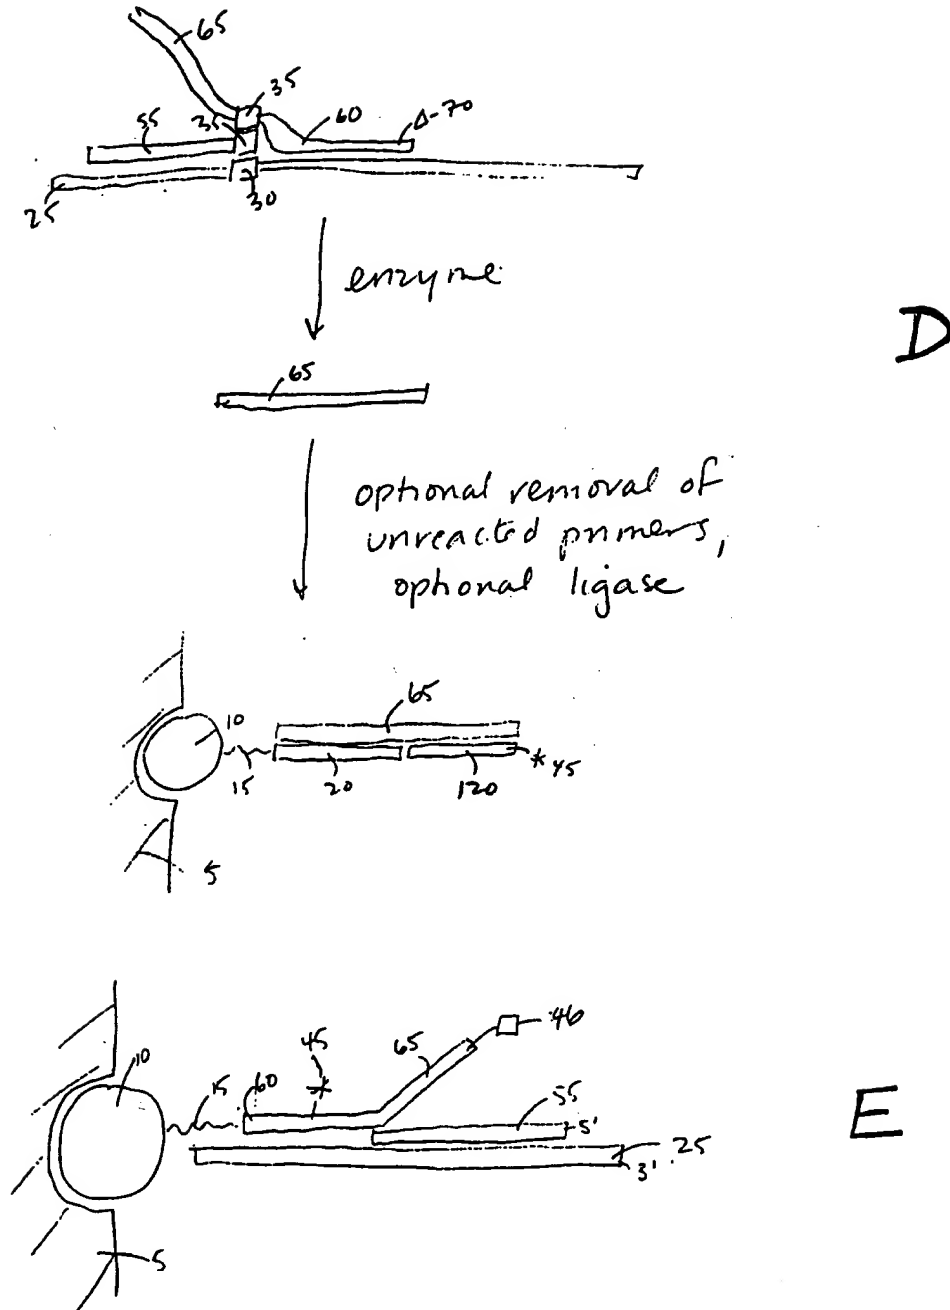 65
35
55
35
60
Δ-70
25
30
enzyme
D
65
optional removal of
unreacted primers,
optional ligase
65
10
15
20
120
*45
5
46
45
65
10
60
15
55
5'
E
25
3'
5